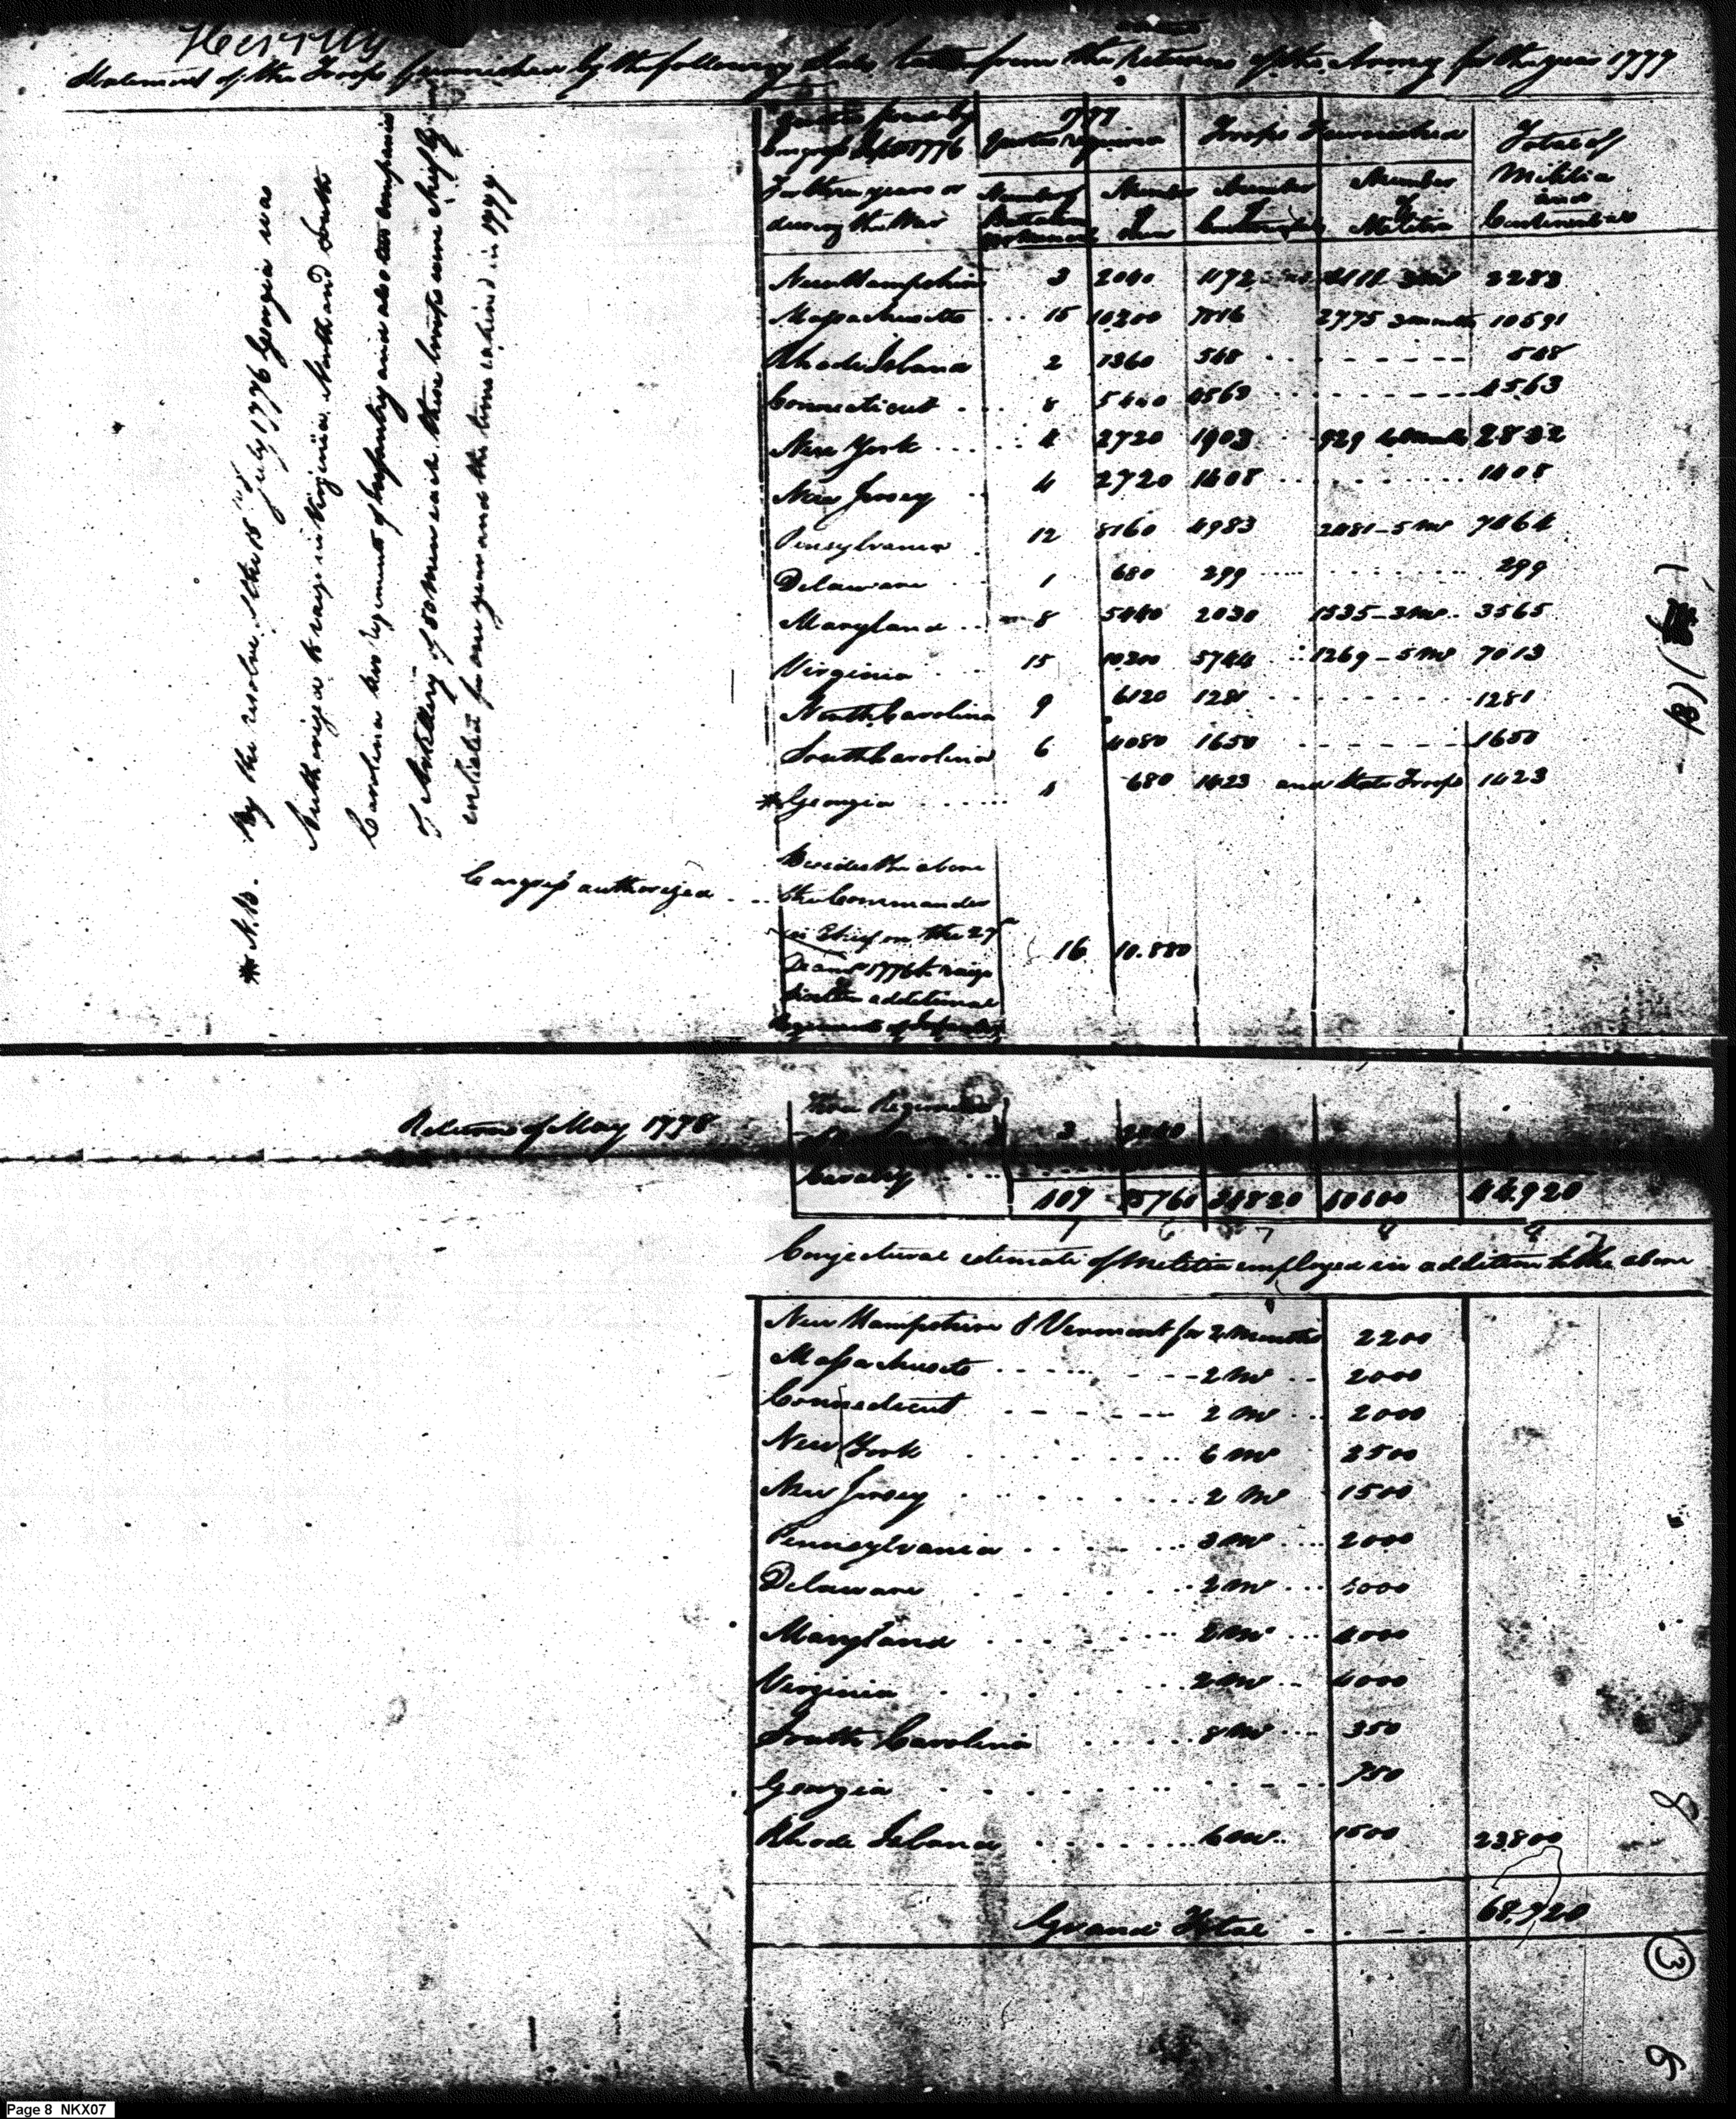 Henry
Statement of the Troops furnished by the following States taken from the returns of the Army for the year 1777
Quotas fixed by Congress Sept 1776 For three years or during the War
1777
Quotas required
Troops Furnished
Total of Militia and Continentals
Number of Battalions
Number of Men
Number of Continentals
Number of Militia
New Hampshire 3 2040 1172 1111 3 ms 2283
Massachusetts ... 15 10200 7816 2775 3 months 10591
Rhode Island 2 1360 548 548
Connecticut .... 8 5440 4563 4563
New York ..... 4 2720 1903 929 6 Months 2832
New Jersey .. 4 2720 1408 1408
Pensylvania . 12 8160 4983 2481 - 5 ms 7464
Delaware .. 1 680 299 299
Maryland ... 8 5440 2030 1535 - 3 ms 3565
Virginia .. 15 10200 5744 1269 - 5 ms 7013
North Carolina 9 6120 1281 1281
South Carolina 6 4080 1650 1650
* Georgia ...... 1 680 1423 and State Troops 1423
Congress authorized ...
Besides the above
the Commander
in Chief on the 27th
Decemr 1776 to raise
sixteen additional
Regiments of Infantry
16 10.880
* N.B. By the resolve of the 15th July 1776 Georgia was
Authorized to raise in Virginia, North and South
Carolina two Regiments of Infantry and also two companies
of Artillery of 50 Men each these troops were chiefly
enlisted for one year and the time expired in 1777.
Return of May 1778
Three Regiments
Cavalry
3 2040
107 75760 34820 10100 44.920
Conjectural estimate of Militia employed in addition to the above
New Hampshire & Vermont for 2 Months 2200
Massachusets 2 ms 2000
Connecticut 2 ms 2000
New York 6 ms 2500
New Jersey 2 ms 1500
Pennsylvania 3 ms 2000
Delaware 2 ms 1000
Maryland 2 ms 4000
Virginia 2 ms 4000
South Carolina 8 ms 350
Georgia 750
Rhode Island 6 ms 1500 23800
Grand Total 68,720
3
6
Page 8 NKX07